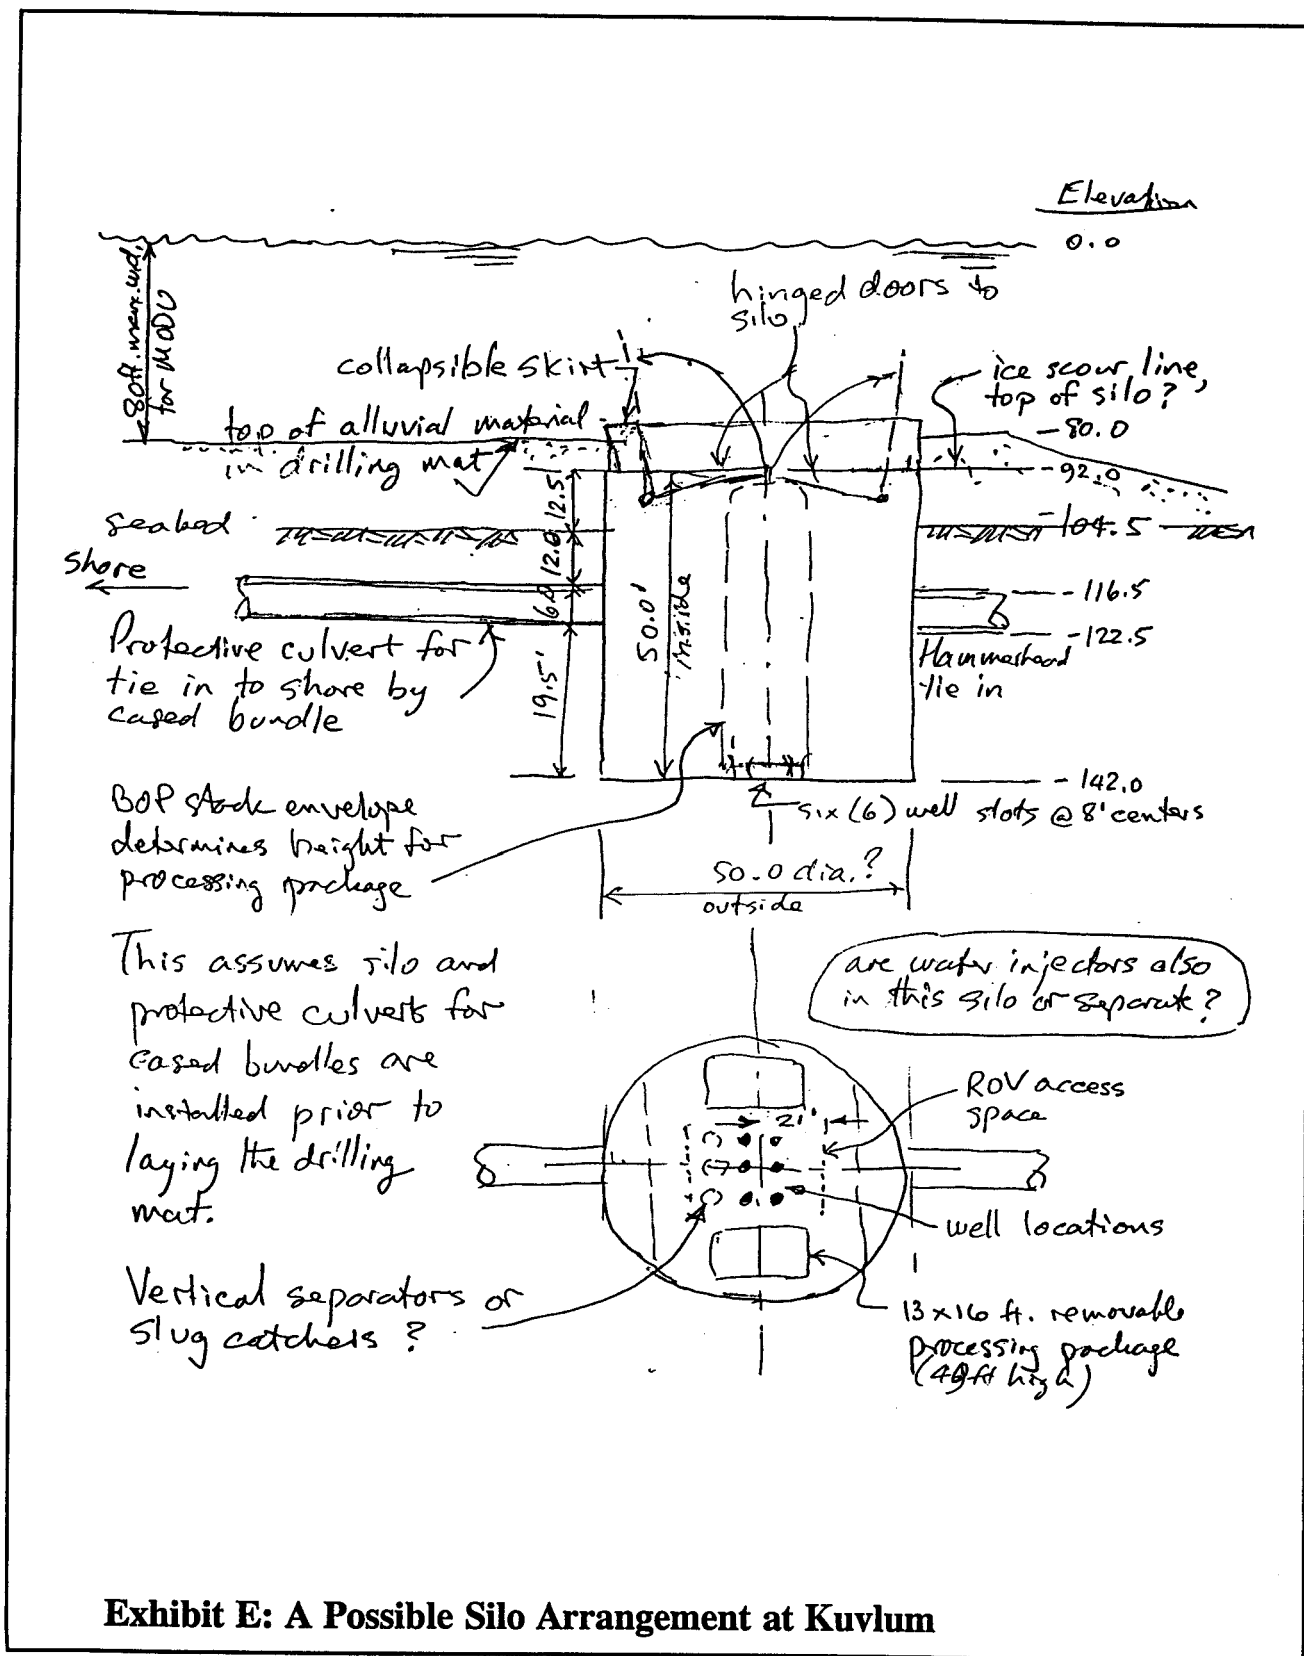 Elevation
0.0
80 ft. max. w.d.
for MODU
hinged doors to
silo
collapsible skirt
ice scour line,
top of silo?
top of alluvial material
in drilling mat
-80.0
-92.0
12.5
seabed
-104.5
12.0
shore
-116.5
6.0
50.0'
inside
Protective culvert for
tie in to shore by
cased bundle
-122.5
Hammerhead
tie in
19.5'
-142.0
BOP stack envelope
determines height for
processing package
six (6) well slots @ 8' centers
50.0 dia.?
outside
This assumes silo and
protective culverts for
cased bundles are
installed prior to
laying the drilling
mat.
are water injectors also
in this silo or separate?
ROV access
space
21'
well locations
Vertical separators or
slug catchers?
13 x 16 ft. removable
processing package
ft high)
Exhibit E: A Possible Silo Arrangement at Kuvlum